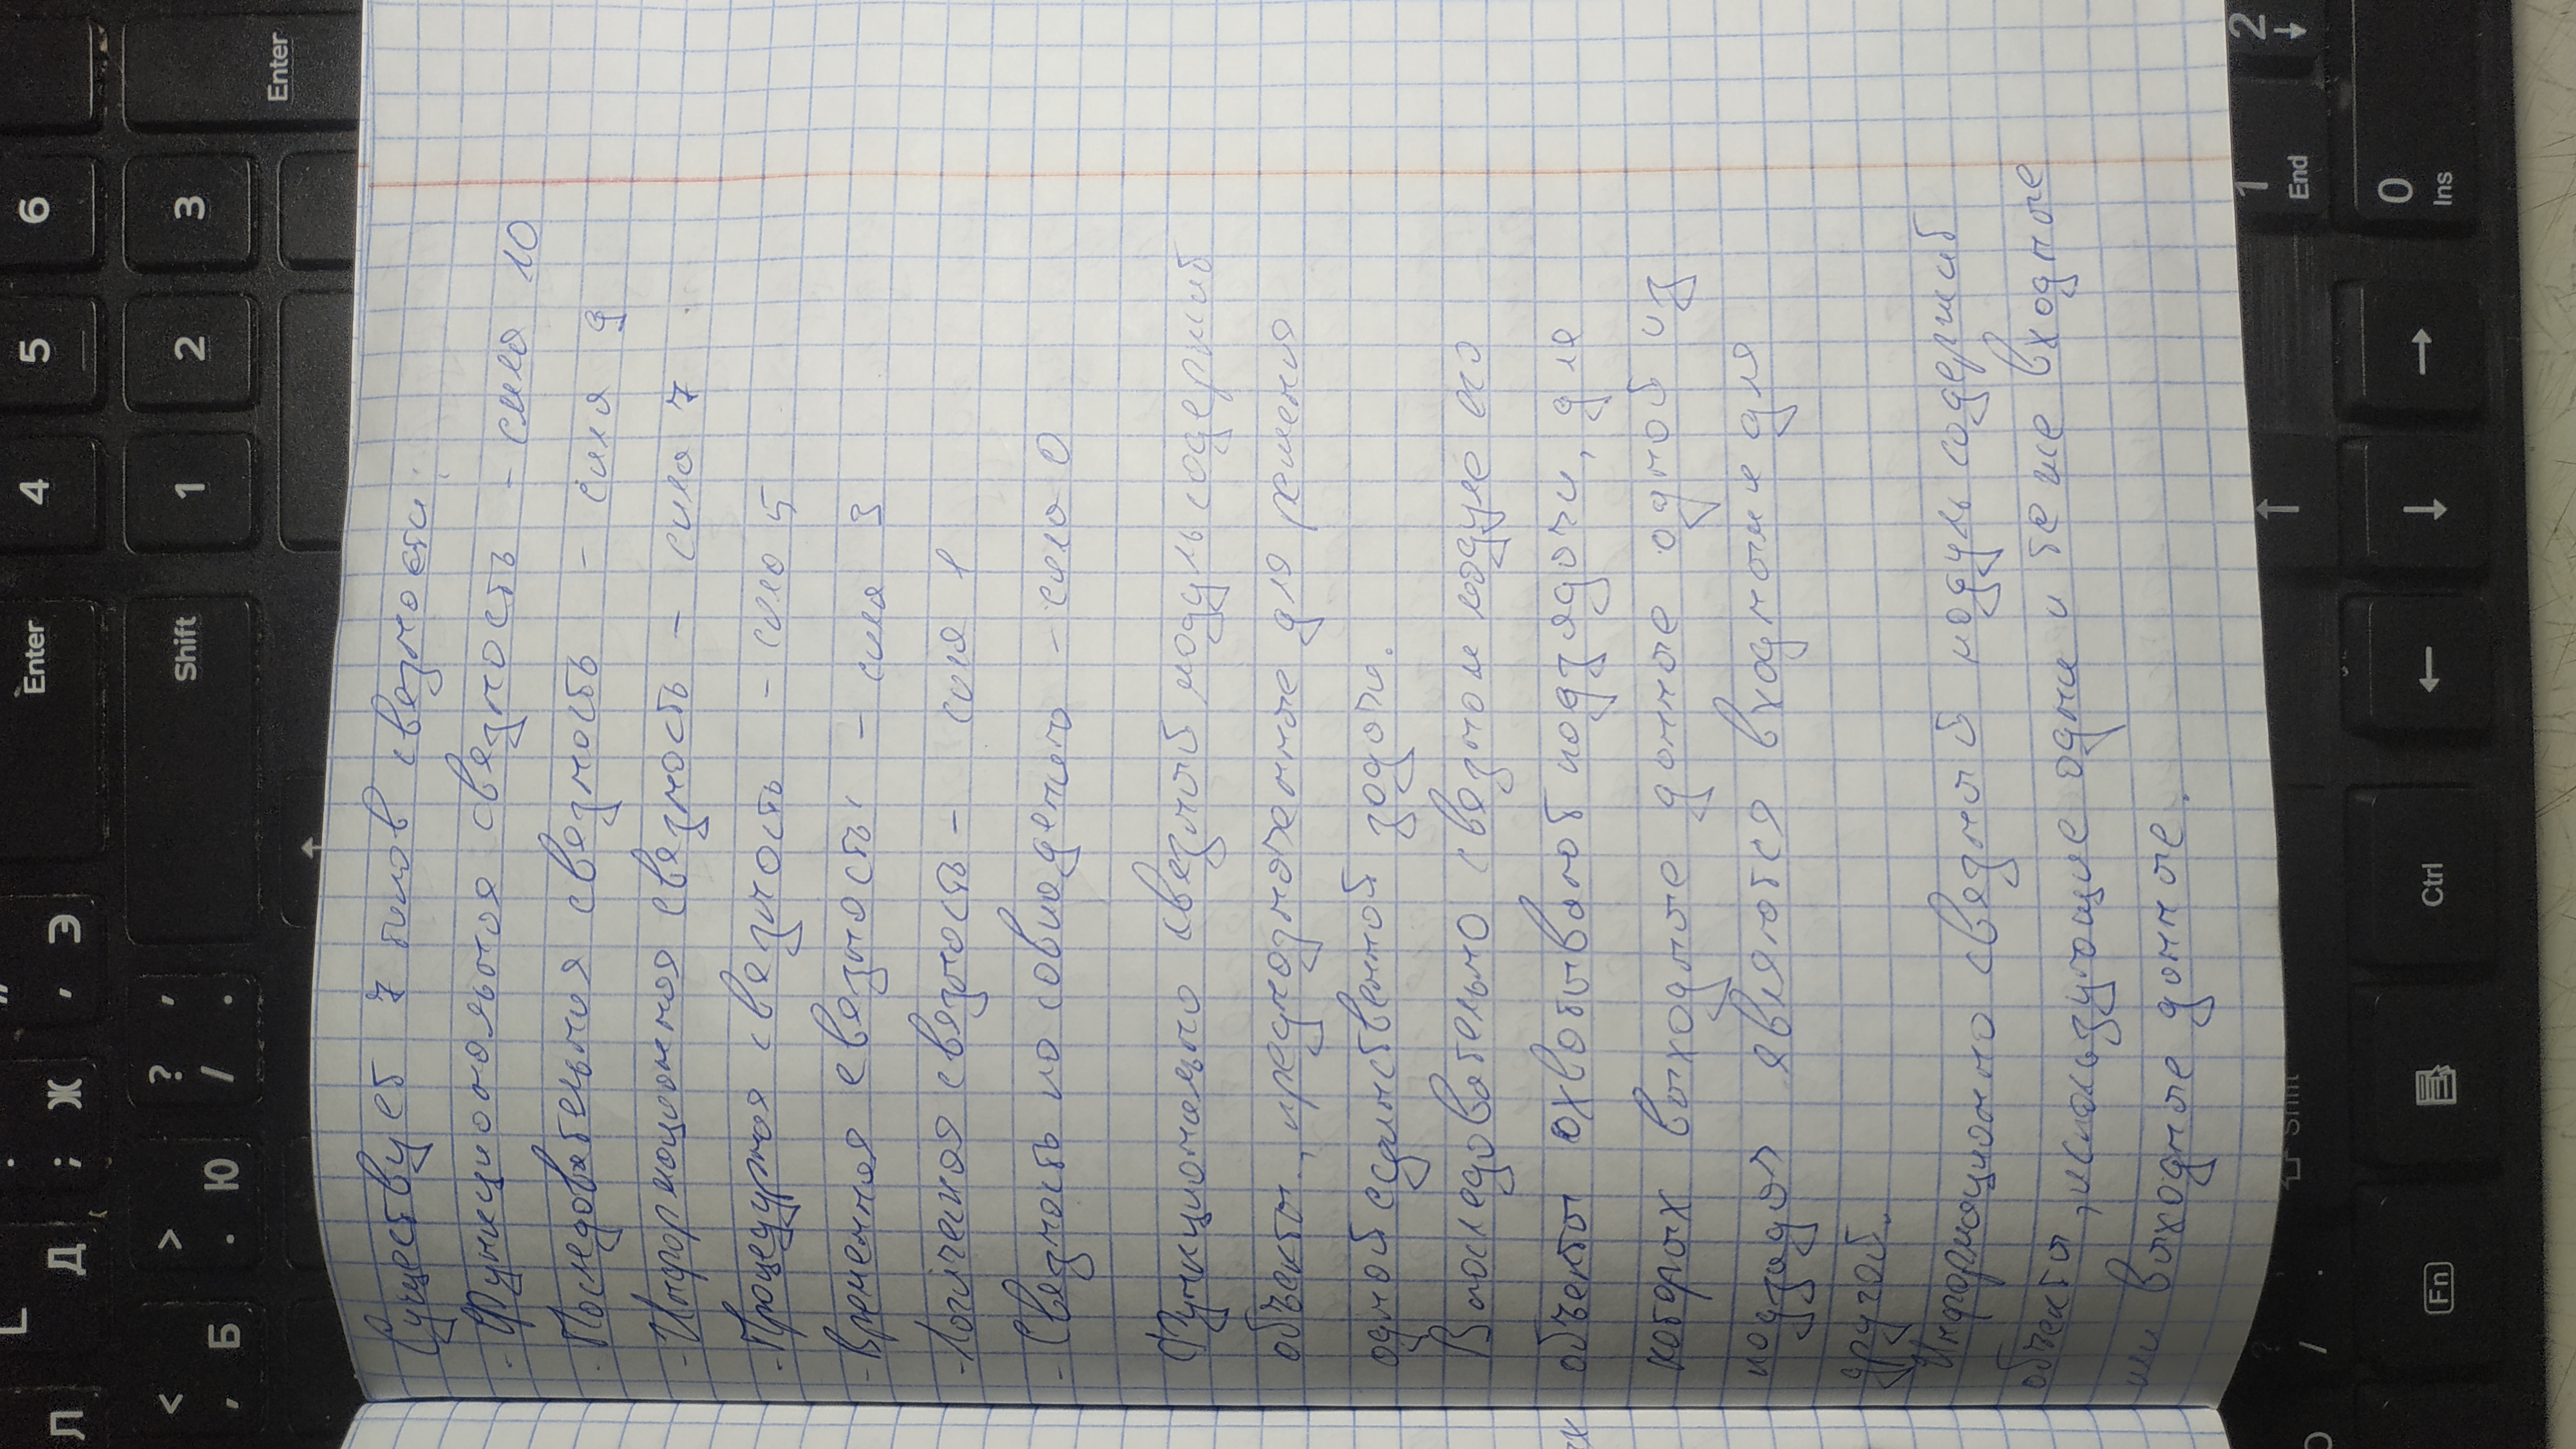 Л Д ; Ж ' Э Enter 4 5 6
< , Б > . Ю ? / , . Shift 1 2 3
Enter
Существует 7 типов связности:
- Функциональная связность - сила 10
- Последовательная связность - сила 9
- Информационная связность - сила 7
- Процедурная связность - сила 5
- Временная связность - сила 3
- Логическая связность - сила 1
- Связность по совпадению - сила 0
Функционально связный модуль содержит
объекты, предназначенные для решения
одной единственной задачи.
В последовательно связном модуле его
объекты охватывают подзадачи, для
которых выходные данные одной из
подзадач являются входными для
другой.
Информационно связный модуль содержит
объекты, использующие одни и те же входные
или выходные данные.
? / . Shift 1 End 2
Fn Ctrl 0 Ins